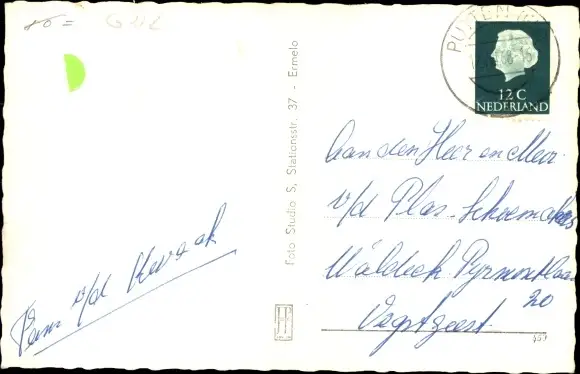 G112
PUTTEN
12 C
NEDERLAND
Foto Studio S, Stationsstr. 37 - Ermelo
Aan den Heer en Mevr.
v/d Plas - Schoemakers
Waldeck Pyrmontlaan
20
Oegstgeest
Fam v/d